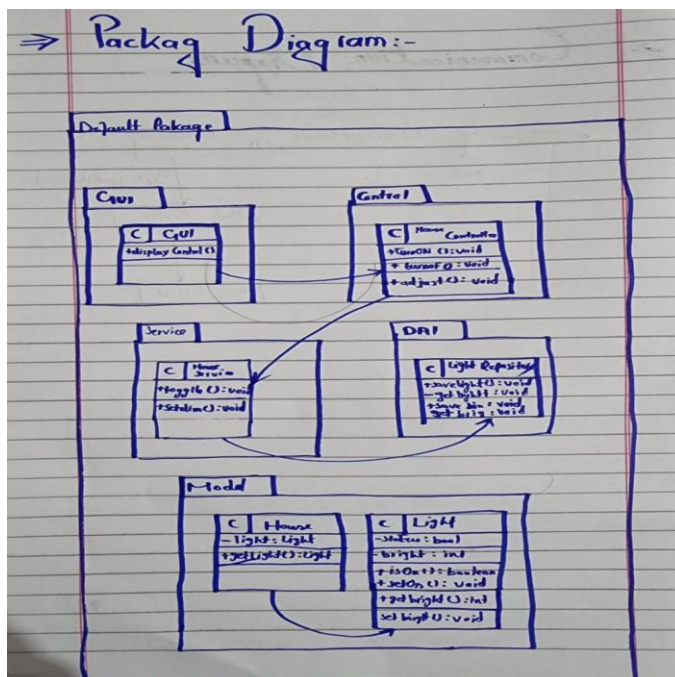 ⇒ Packag Diagram:-
Default Pakage
GUI
C GUI
+display Control()
Control
C House Controller
+turnON():void
+turnof():void
+adjust():void
Service
C House Service
+toggle():void
+setdim():void
DAI
C Light Repository
+savelight():void
-getlight:void
+save bin:void
get brig:void
Model
C House
-light:Light
+getLight():Light
C Light
-status:bool
-bright:int
+isOn():boolean
+setOn():void
+getbright():int
setbright():void